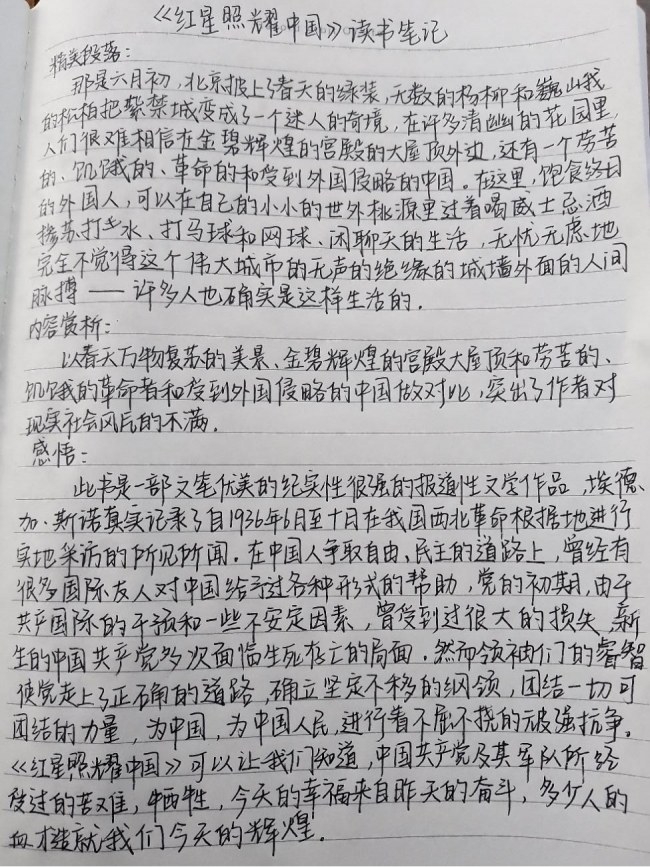 《红星照耀中国》读书笔记
精美段落：
那是六月初，北京披上了春天的绿装，无数的杨柳和巍山我
的松柏把紫禁城变成了一个迷人的奇境，在许多清幽的花园里
人们很难相信在金碧辉煌的宫殿的大屋顶外边，还有一个劳苦
的、饥饿的、革命的和受到外国侵略的中国。在这里，饱食终日
的外国人，可以在自己的小小的世外桃源里过着喝威士忌酒
掺苏打水、打马球和网球、闲聊天的生活，无忧无虑地
完全不觉得这个伟大城市的无声的绝缘的城墙外面的人间
脉搏——许多人也确实是这样生活的.
内容赏析：
以春天万物复苏的美景、金碧辉煌的宫殿大屋顶和劳苦的、
饥饿的革命者和受到外国侵略的中国做对比，突出了作者对
现实社会风民的不满.
感悟：
此书是一部文笔优美的纪实性很强的报道性文学作品，埃德
加、斯诺真实记录了自1936年6月至十月在我国西北革命根据地进行
实地采访的所见所闻.在中国人争取自由、民主的道路上，曾经有
很多国际友人对中国给予过各种形式的帮助，党的初期，由于
共产国际的干预和一些不安定因素，曾受到过很大的损失，新
生的中国共产党多次面临生死存亡的局面.然而领袖们的睿智
使党走上了正确的道路，确立坚定不移的纲领，团结一切可
团结的力量，为中国，为中国人民，进行着不屈不挠的顽强抗争。
《红星照耀中国》可以让我们知道，中国共产党及其军队所经
受过的苦难，牺牲，今天的幸福来自昨天的奋斗，多少人的
血才造就我们今天的辉煌.